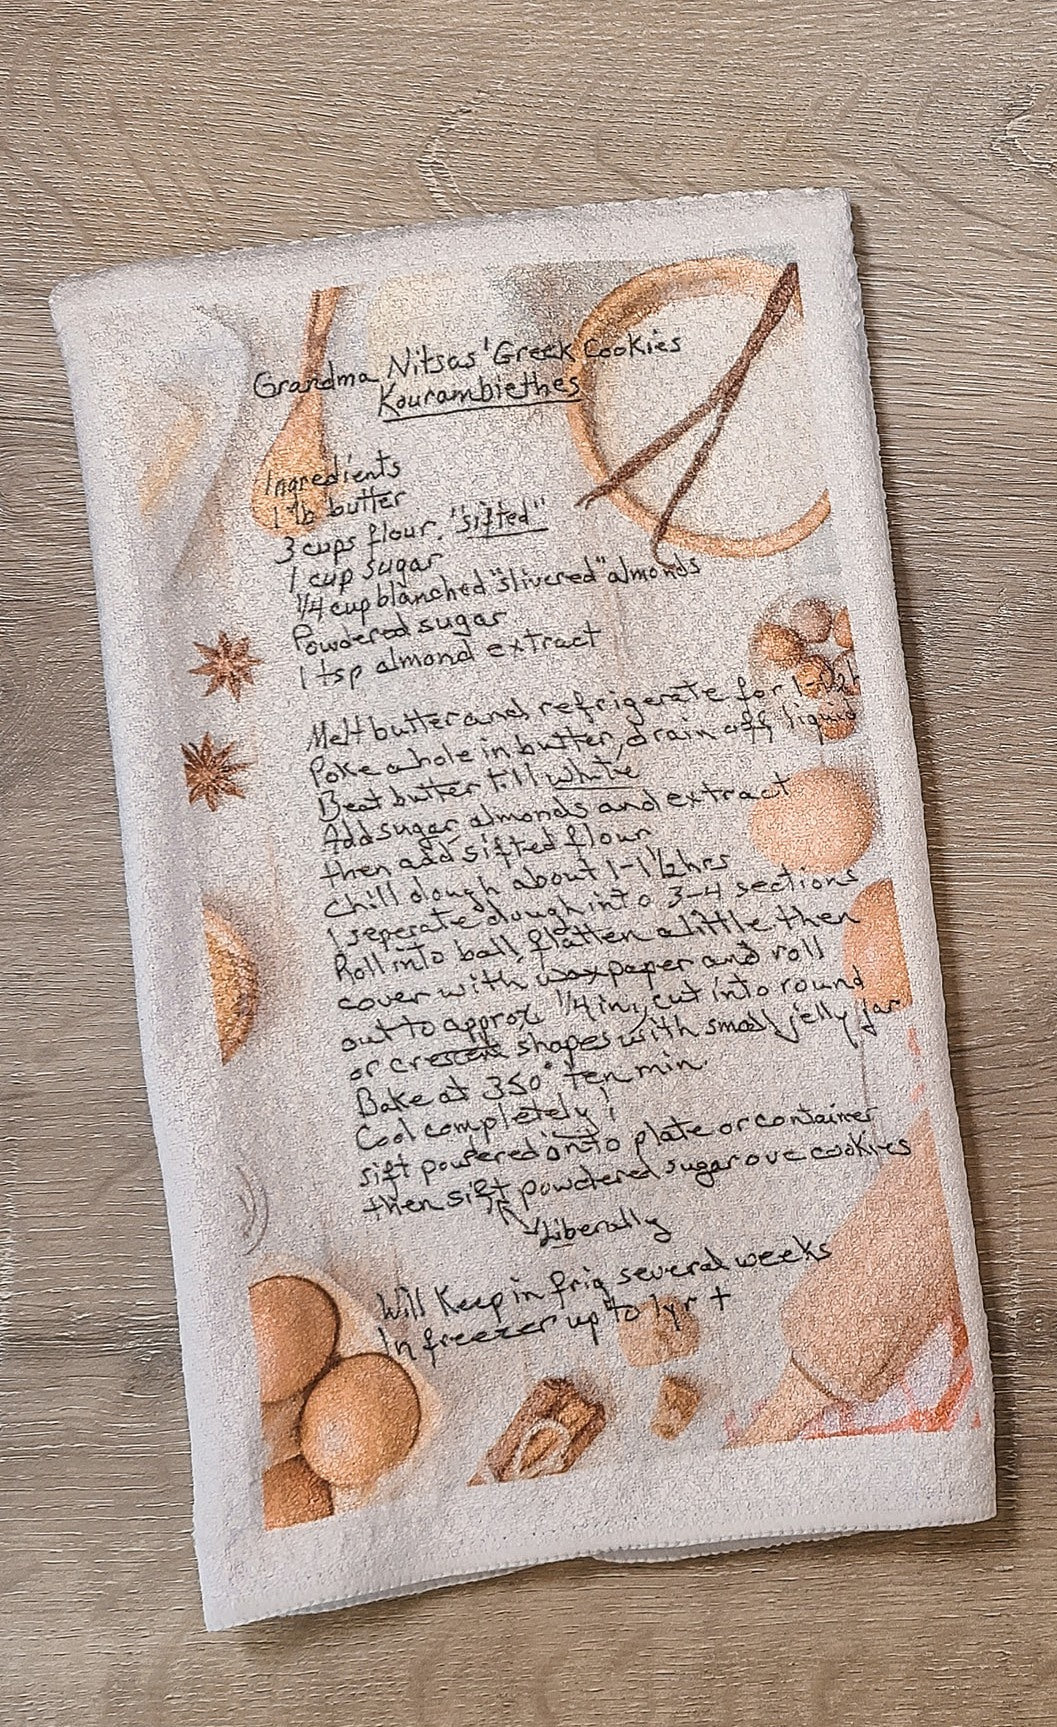 Grandma Nitsas' Greek Cookies
Kourambiethes
Ingredients
1 lb butter
3 cups flour, "sifted"
1 cup sugar
1/4 cup blanched "slivered" almonds
Powdered sugar
1 tsp almond extract
Melt butter and refrigerate for
Poke a hole in butter, drain off liquid
Beat butter till white
Add sugar almonds and extract
then add sifted flour
Chill dough about 1-1 1/2 hrs
I seperate dough into 3-4 sections
Roll into ball, flatten a little then
cover with wax paper and roll
out to approx 1/4 in, cut into round
or crescent shapes with small jelly jar
Bake at 350° ten min.
Cool completely!
sift powered onto plate or container
then sift powdered sugar ove cookies
Liberally
Will Keep in frig several weeks
In freezer up to 1yr +